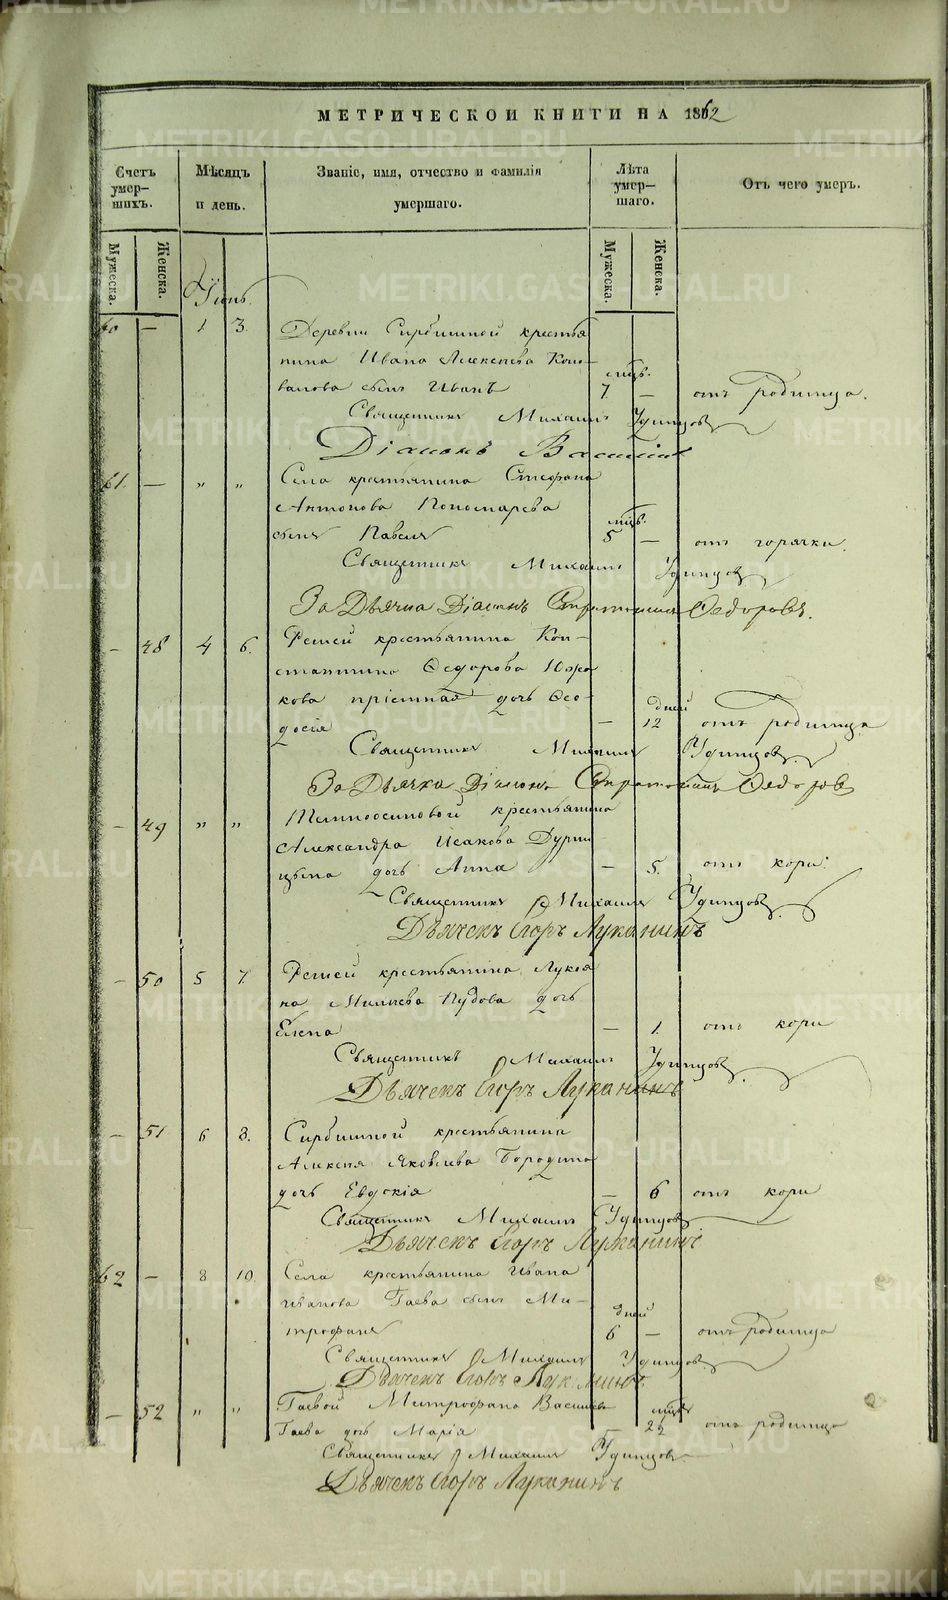 МЕТРИЧЕСКОЙ КНИГИ НА 1862
Счетъ умер-шихъ.
Мѣсяцъ и день.
Званіе, имя, отчество и фамилія умершаго.
Лѣта умер-шаго.
Отъ чего умеръ.
Мужеска. Женска. Мужеска. Женска.
Іюнь.
60 — 1 3. Деревни Сирбишной крестья
нина Ивана Алексѣева Коно-
мѣц.
валова сынъ Иванъ 7. — отъ родимца.
Священникъ Михаилъ Удинцовъ
Діаконъ Василій
61. — " " Села крестьянина Стефана
Антонова Пономарева
мѣц.
сынъ Павелъ 5 — отъ горячки.
Священникъ Михаилъ Удинцовъ
За Дьячка Діаконъ Федоровъ.
— 48 4 6. крестьянина Кон-
стантина Ѳедорова
кова пріемная дочь Ѳео-
дней
досія — 12 отъ родимца
Священникъ Михаилъ Удинцовъ.
За Дьячка Діаконъ Федоровъ
— 49 " " Темноосиновой крестьянина
Александра Исакова
дочь Анна — 5. отъ кори.
Священникъ Михаилъ Удинцовъ.
Дьячекъ Егоръ Луканинъ
— 50 5 7. крестьянина Лукоя
на Пудова дочь
Елена — 1. отъ кори
Священникъ Михаилъ Удинцовъ.
Дьячекъ Егоръ Луканинъ
— 51 6 8. Сирбишной крестьянина
Алексѣя Яковлева Бородина
дочь Евдокія — 6 отъ кори
Священникъ Михаилъ Удинцовъ
Дьячекъ Егоръ Луканинъ
62 — 8 10. Села крестьянина Ивана
Иванова Гаева сынъ Ми-
дней
трофанъ 6 — отъ родимца
Священникъ Михаилъ Удинцовъ.
Дьячекъ Егоръ Луканинъ
— 52 " " Гаевой Митрофана Васильева
Гаева дочь Марія отъ родимца
Священникъ Михаилъ Удинцовъ
Дьячекъ Егоръ Луканинъ
METRIKI.GASO-URAL.RU